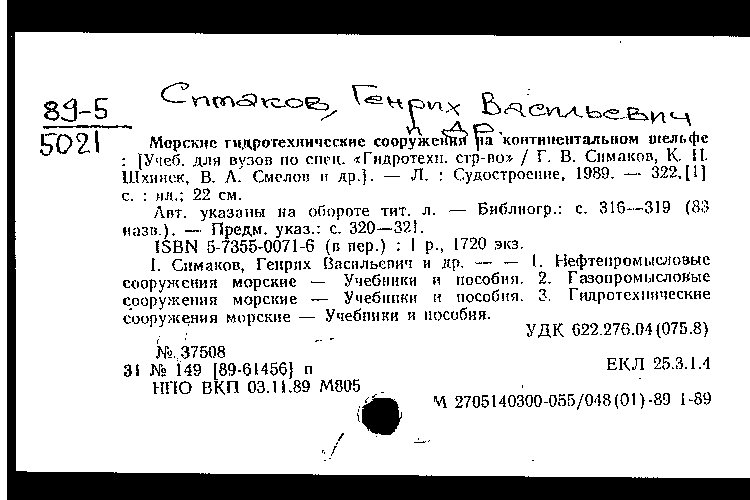 89-5
5021
Симаков, Генрих Васильевич
и др.
Морские гидротехнические сооружения на континентальном шельфе
: [Учеб. для вузов по спец. «Гидротехн. стр-во» / Г. В. Симаков, К. Н.
Шхинек, В. А. Смелов и др.]. — Л. : Судостроение, 1989. — 322,[1]
с. : ил.; 22 см.
Авт. указаны на обороте тит. л. — Библиогр.: с. 316—319 (83
назв.). — Предм. указ.: с. 320—321.
ISBN 5-7355-0071-6 (в пер.) : 1 р., 1720 экз.
I. Симаков, Генрих Васильевич и др. — — 1. Нефтепромысловые
сооружения морские — Учебники и пособия. 2. Газопромысловые
сооружения морские — Учебники и пособия. 3. Гидротехнические
сооружения морские — Учебники и пособия.
УДК 622.276.04(075.8)
№ 37508
31 № 149 [89-61456] п
ЕКЛ 25.3.1.4
НПО ВКП 03.11.89 М805
М 2705140300-055/048(01)-89 1-89